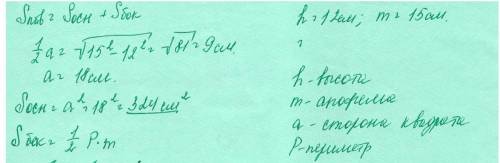 Sпов = Sосн + Sбок
½a = √15² - 12² = √81 = 9см.
a = 18см.
Sосн = a² = 18² = 324 см²
Sбок = ½ P·m
h = 12см; m = 15см.
?
h - высота
m - апофема
a - сторона квадрата
P - периметр